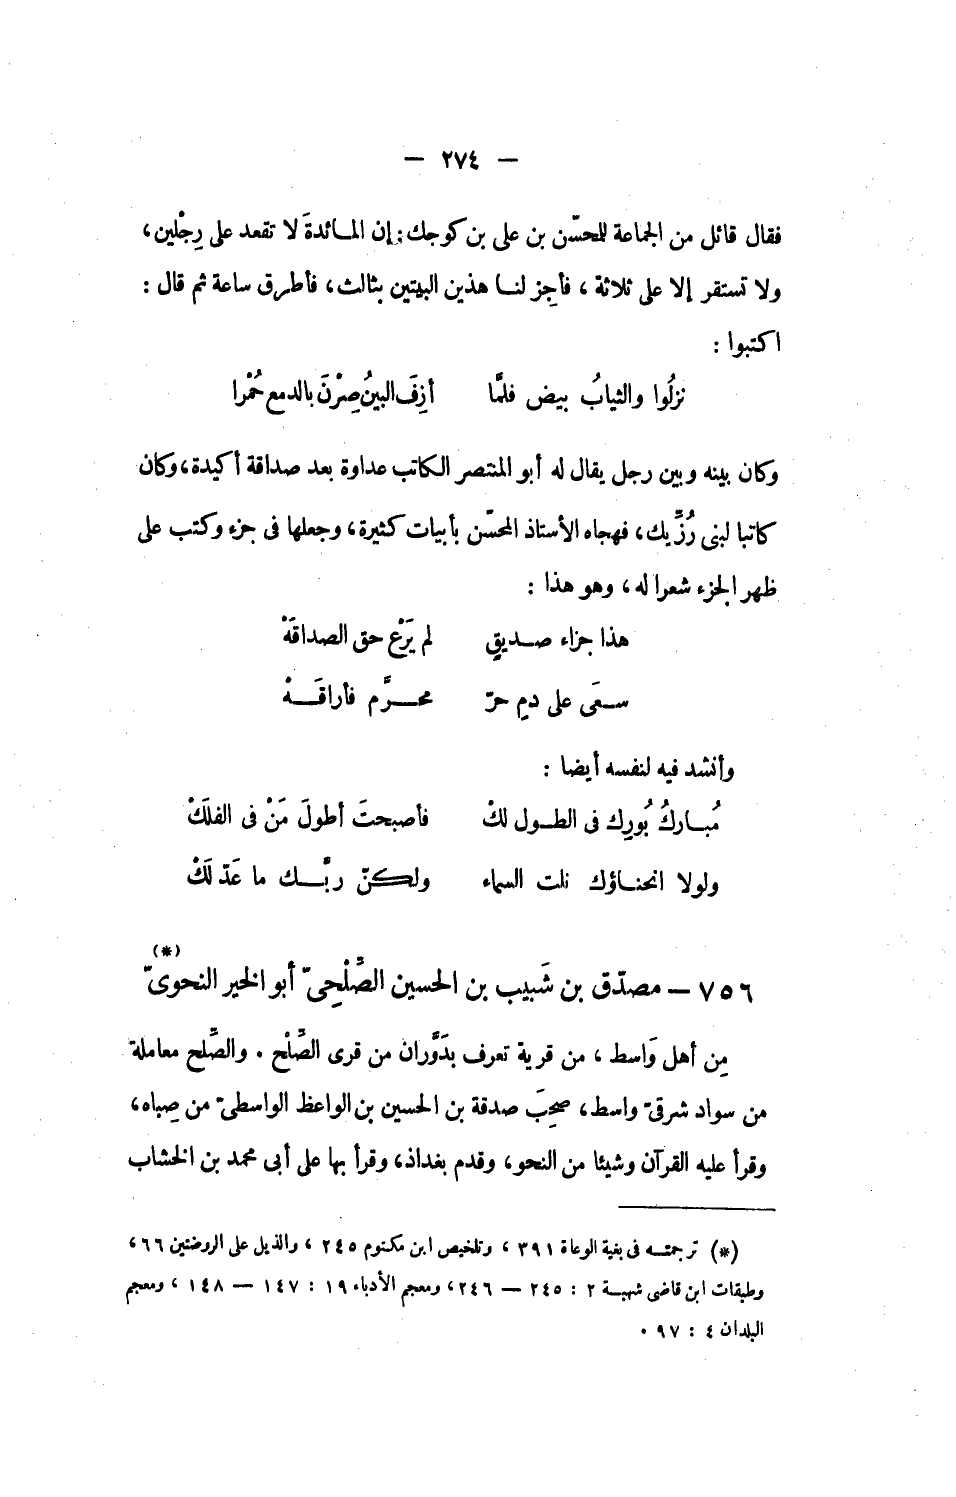 — ٢٧٤ —
فقال قائل من الجماعة للمحسّن بن على بن كوجك: إن المـائدةَ لا تقعد على رِجْلين،
ولا تستقر إلا على ثلاثة، فأجِز لنـا هذين البيتين بثالث، فأطرق ساعة ثم قال :
اكتبوا :
نزلُوا والثيابُ بيض فلمَّا أزِفَ البينُ صِرْنَ بالدمع حُمْرا
وكان بينه وبين رجل يقال له أبو المنتصر الكاتب عداوة بعد صداقة أكيدة، وكان
كاتبا لبنى رُزِّيك، فهجاه الأستاذ المحسّن بأبيات كثيرة، وجعلها فى جزء وكتب على
ظهر الجزء شعرا له، وهو هذا :
هذا جزاء صـديقٍ لم يَرْع حق الصداقَهْ
سـعَى على دمِ حرّ محـــرَّم فأراقَـــهْ
وأنشد فيه لنفسه أيضا :
مُبـاركُ بُورِك فى الطـول لكْ فأصبحتَ أطولَ مَنْ فى الفلَكْ
ولولا انحنـاؤك نلت السماء ولكنّ ربَّـــك ما عَدّ لَكْ
٧٥٦ — مصدّق بن شَبيب بن الحسين الصِّلْحِىّ أبو الخير النحوىّ (*)
مِن أهل وَاسط، من قرية تعرف بدَوَّران من قرى الصِّلْح . والصِّلح معاملة
من سواد شرقىّ واسط، صحِبَ صدقة بن الحسين بن الواعظ الواسطىّ من صِباه،
وقرأ عليه القرآن وشيئا من النحو، وقدم بغداذ، وقرأ بها على أبى محمد بن الخشاب
(*) ترجمتـه فى بغية الوعاة ٣٩١ ، وتلخيص ابن مكتوم ٢٤٥ ، والذيل على الروضتين ٦٦ ،
وطبقات ابن قاضى شهبـة ٢ : ٢٤٥ — ٢٤٦، ومعجم الأدباء ١٩ : ١٤٧ — ١٤٨ ، ومعجم
البلدان ٤ : ٩٧ .